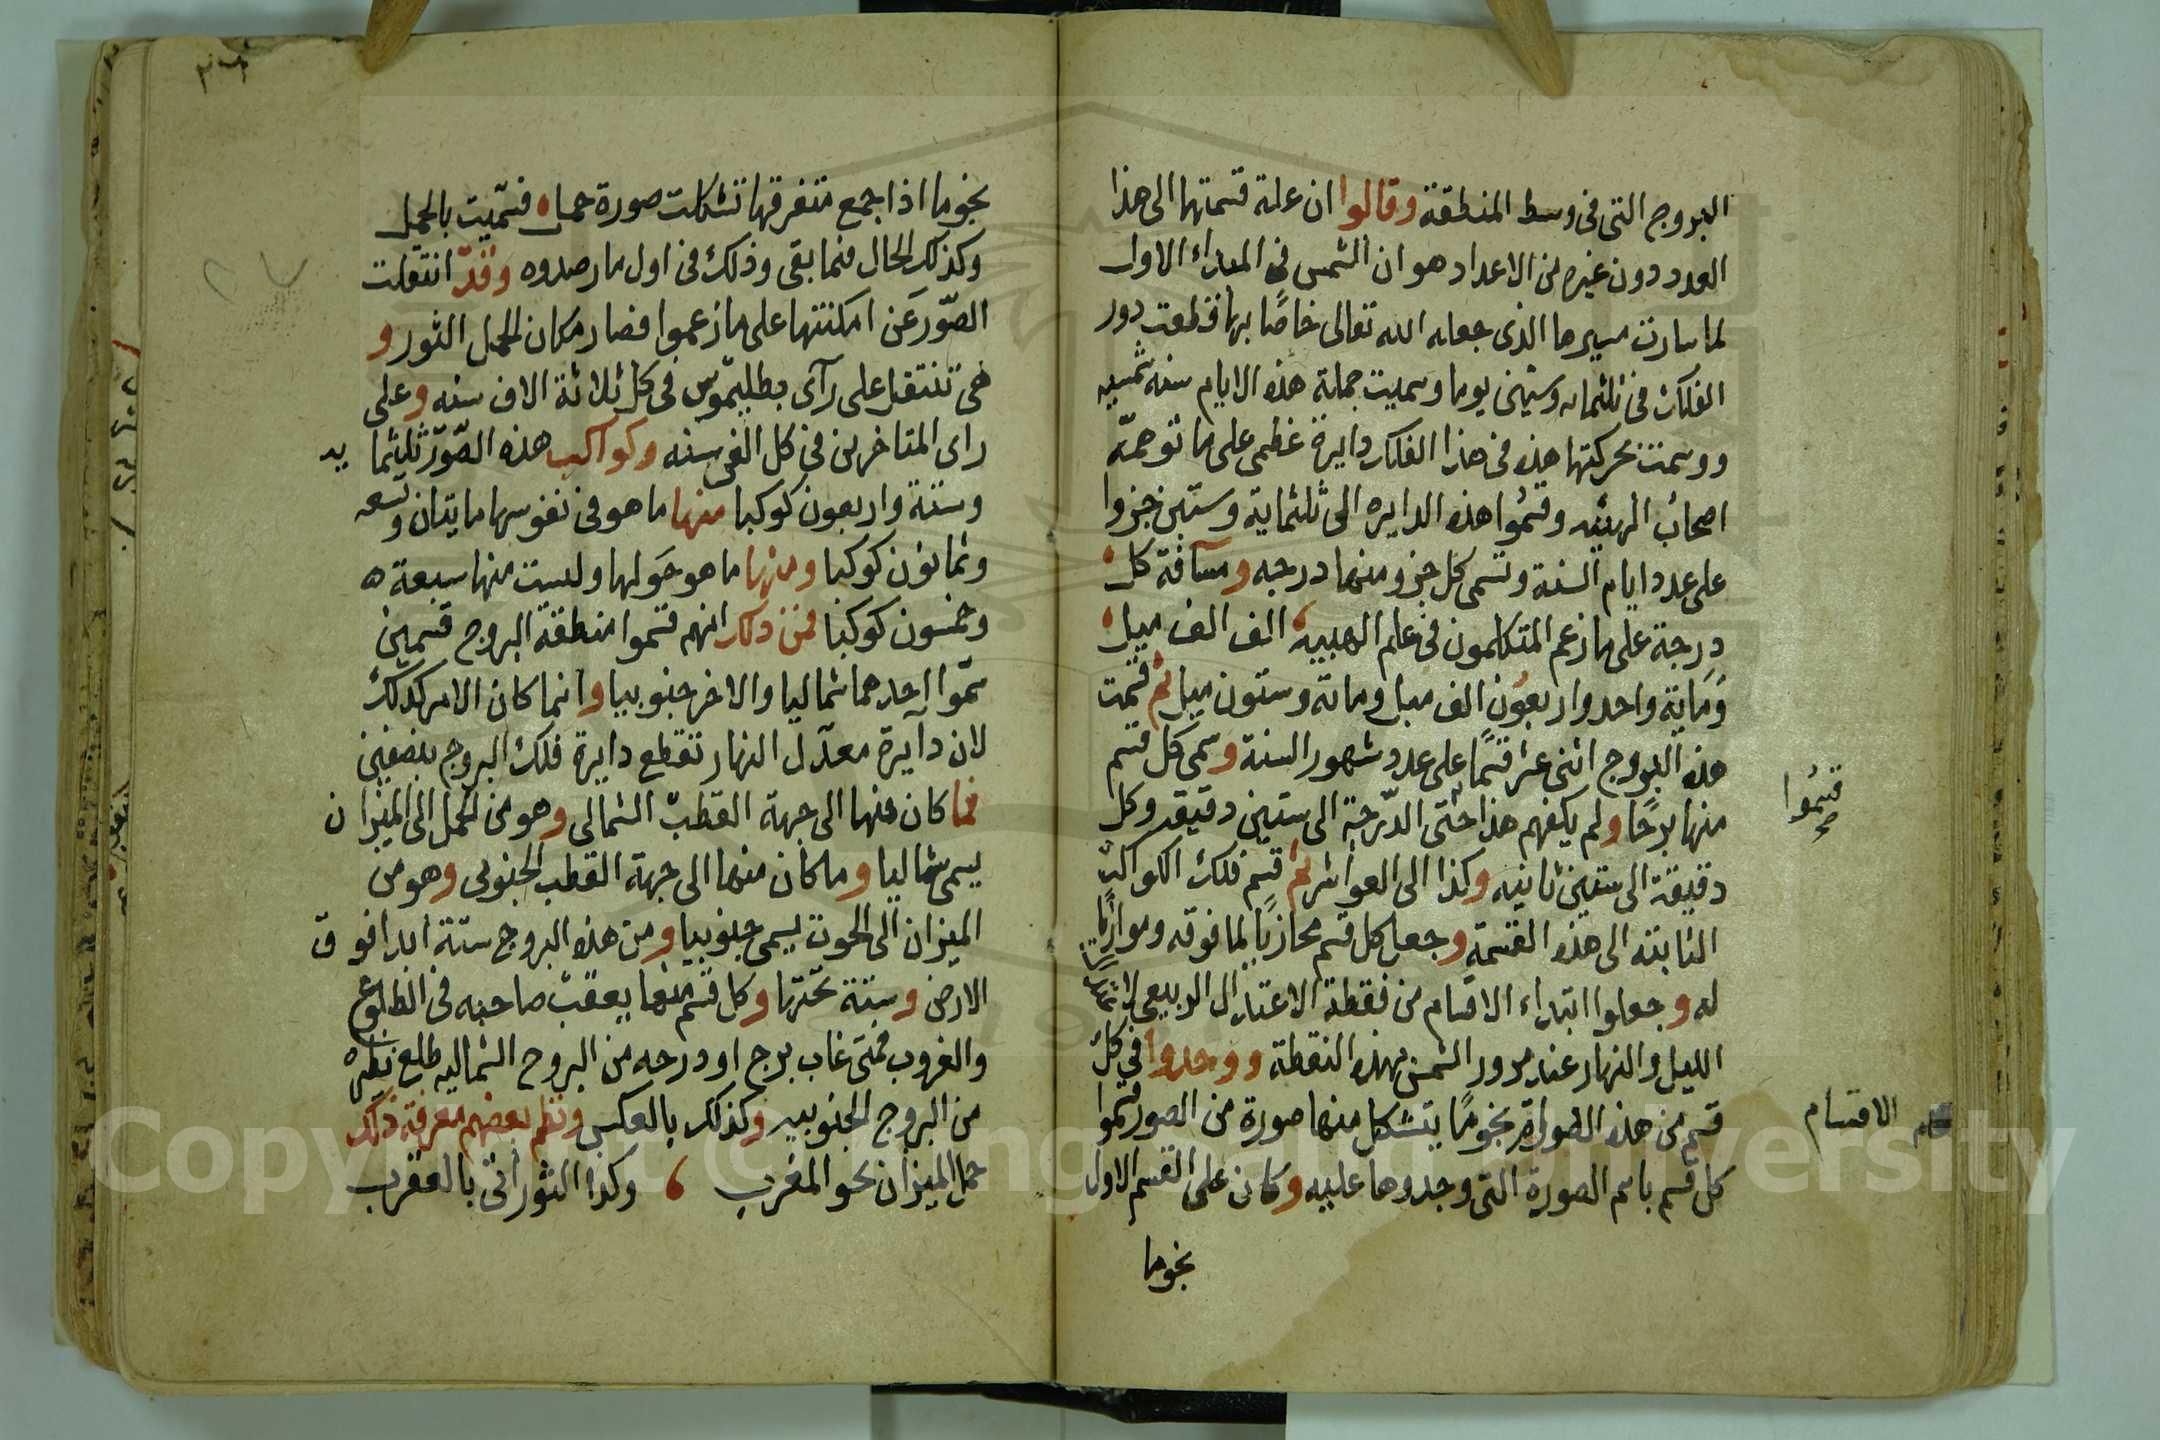 البروج التى فى وسط المنطقة وقالوا ان علة قسمتها الى هذا
العدد دون غيره من الاعداد هو ان الشمس فى المبداء الاول
لما سارت مسيرها الذى جعله الله تعالى خاصًا بها قطعت دور
الفلك فى ثلثمائه وستين يوما وسميت جملة هذه الايام سنه شمسيه
ورسمت بحركتها هذه فى هذا الفلك دايرة عظمى على ما توهمه
اصحاب الهيئه وقسموا هذه الدايره الى ثلثماية وستين جزوا
على عدد ايام السنة وتسمى كل جزو منها درجه ومسافة كل
درجة على ما زعم المتكلمون فى علم الهيية الف الف ميل
وماية واحد واربعون الف ميل وماية وستون ميل ثم قسمت
هذه البروج اثنى عشر قسمًا على عدد شهور السنة وسمى كل قسم
منها برجًا ولم يكفهم هذا حتى الدّرجة الى ستين دقيقه وكل
قسموا صح
دقيقة الى ستين ثانيه وكذا الى العواشر ثم قسم فلك الكواكب
الثابتة الى هذه القسمة وجعل كل قسم محازيًا لما فوقه وموازيًا
له وجعلوا ابتداء الاقسام من نقطة الاعتدال الربيعى
الليل والنهار عند مرور الشمس بهذه النقطة ووجدوا فى كل
قسم من هذه نجومًا يتشكل منها صورة من الصور فسموا
الاقسام
كل قسم باسم الصورة التى وجدوها عليه وكان على القسم الاول
نجوما
٣٦
نجوما اذا جمع متفرقها تشكلت صورة حمل فسمّيت بالحمل
وكذلك الحال فيما بقى وذلك فى اول ما رصدوه وقد انتقلت
الصّور عن امكنتها على ما زعموا فصار مكان الحمل الثور و
هى تنتقل على رآى بطليموس فى كل ثلاثة الاف سنه وعلى
راى المتاخرين فى كل الفى سنه وكواكب هذه الصّور ثلثما يه
وستة واربعون كوكبا منها ما هو فى نفوسها مايتان وتسعه
وثمانون كوكبا ومنها ما هو حولها وليست منها سبعة ه
وخمسون كوكبا فمن ذلك انهم قسموا منطقة البروج قسمين
سمّوا احدهما شماليا والاخر جنوبيا وانما كان الامر كذلك
لان دآيرة معدّل النهار تقطع دايرة فلك البروج بنصفين
فما كان منها الى جهة القطب الشمالى وهو من الحمل الى الميزان
يسمى شماليا وما كان منها الى جهة القطب الجنوبى وهو من
الميزان الى الحوت يسمى جنوبيا ومن هذه البروج ستة ابدا فوق
الارض وستة تحتها وكل قسم منها يعقب صاحبه فى الطلوع
والغروب فمتى غاب برج او درجه من البروج الشماليه طلع نظيره
من البروج الجنوبيه وكذلك بالعكس ونظم بعضهم معرفة ذلك
حمل الميزان نحو المغرب ، وكذا الثور اتى بالعقرب
Copyright © King Saud University